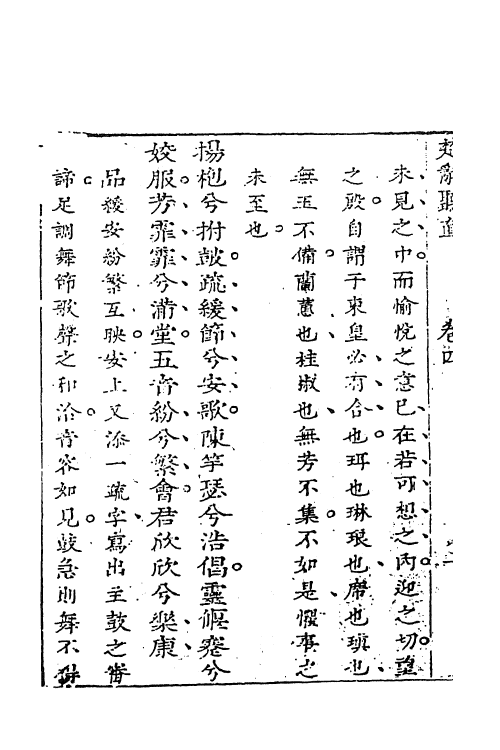 楚辭聽直 卷四
未見之中而愉悅之意已在若可想之內迎之切望
之殷自謂于東皇必有合也珥也琳琅也席也瑱也
無玉不備蘭蕙也桂椒也無芳不集不如是懼事之
未至也
揚枹兮拊鼓疏緩節兮安歌陳竽瑟兮浩倡靈偃蹇兮
姣服芳霏霏兮滿堂五音紛兮繁會君欣欣兮樂康
品緩安紛繁互映安上又添一疏字寫出主鼓之審
諦足調舞節歌聲之和洽音容如見鼓急則舞不